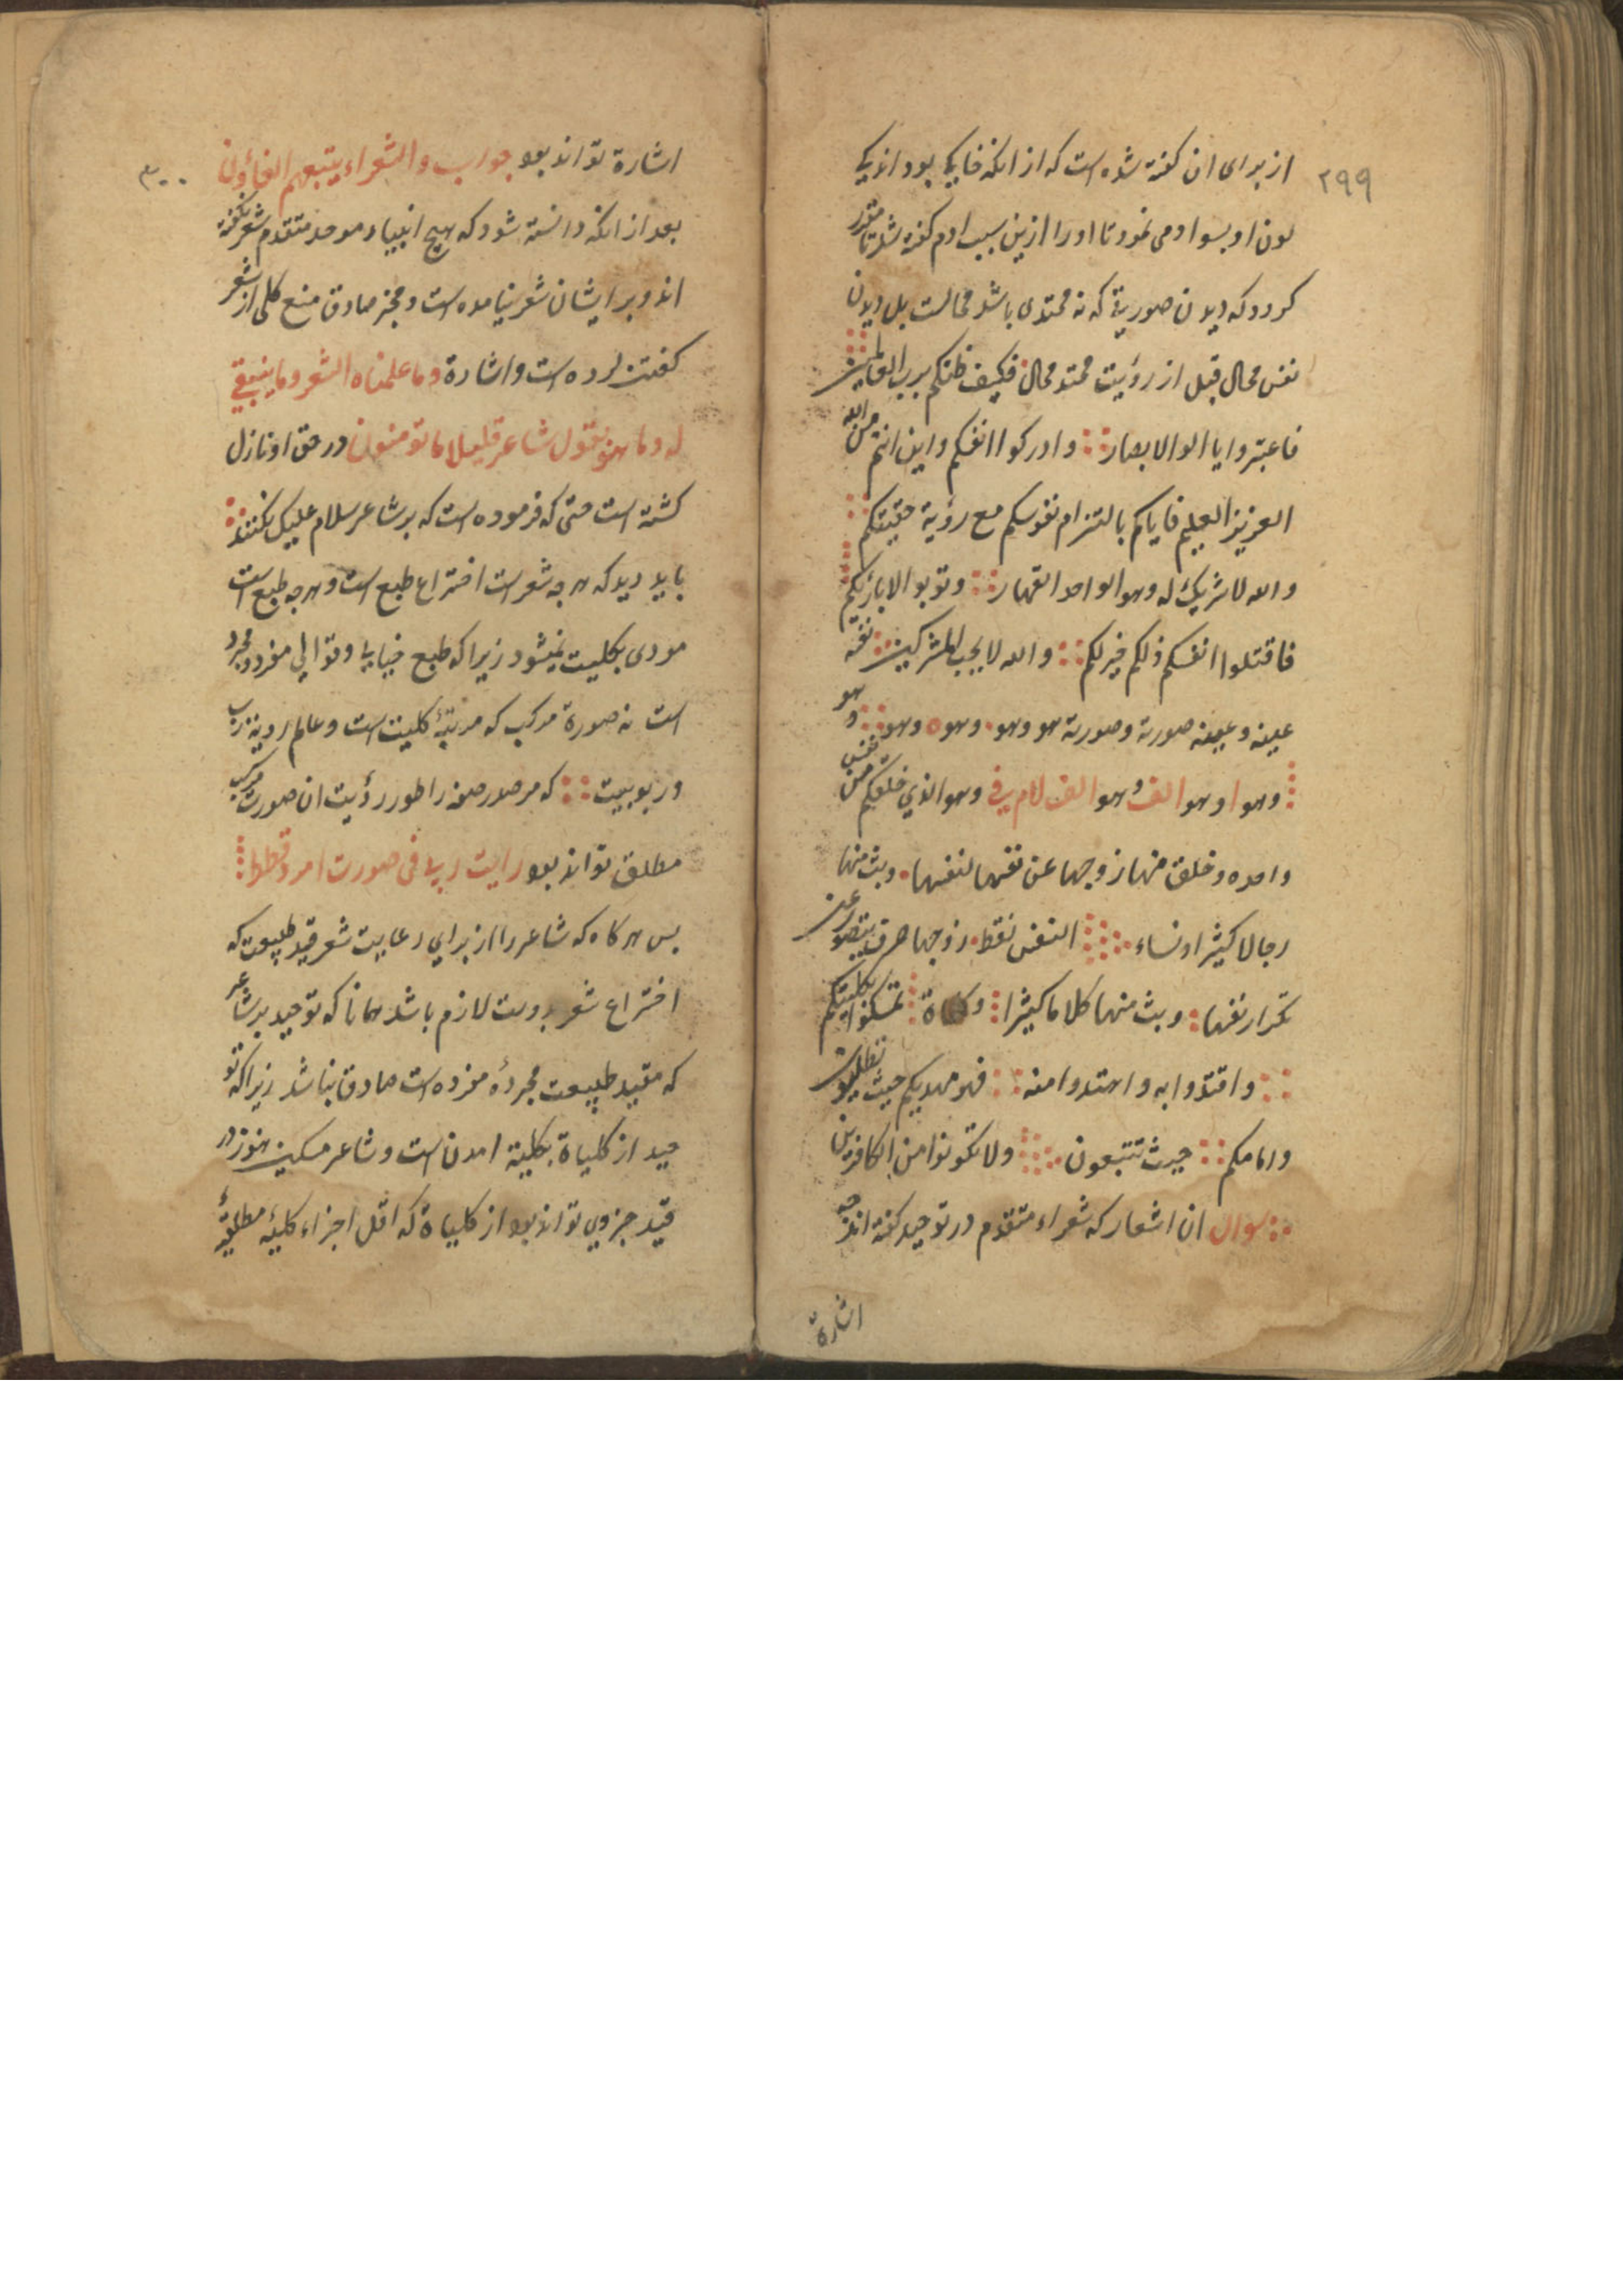 ۲۹۹
از برای ان کفته شده است که از انکه خاکی بود اند یکی
لون او بسواد می نمود تا او را ازین سبب ادم کفته شد تا مقرر
کردد که دیدن صوریة که نه محتدی باشد محالست بل دیدن
نفس محال قبل از رؤیت محتد محال فکیف ظنکم برب العالمین
فاعتبروا یا الوالابصار وادرکوا انفکم واین انتم من الله
العزیز العلیم فایاکم بالتزام نفوسکم مع رؤیة حقیقتکم
والله لا شریک له وهو الواحد القهار وتوبوا الابارئکم
فاقتلوا انفسکم ذلکم خیر لکم والله لا یحب المشرکین نفسه
عینه وعینه صورته وصورته هو وهو وهو ه وهو وهو
وهو ا وهو الف وهو الف لام ف ی وهو الذی خلقکم من نفس
واحده وخلق منها زوجها عن نفسها لنفسها وبث منها
رجالا کثیرا ونساء النفس نقطه زوجها حرف یتصور عن
تکرار نفسها وبث منها کلاما کثیرا تمسکوا بکلیتکم
واقتدوا به واهتدوا منه فهو مهدیکم حیث تطلبون
وامامکم حیث تتبعون ولا تکونوا من الکافرین
سوال ان اشعار که شعراء متقدم در توحید کفته اند چه
اشارة
۳۰۰
اشارة تواند بود جواب والشعراء یتبعهم الغاؤن
بعد از انکه دانسته شود که هیچ انبیاء موحد متقدم شعر نکفته
اند و بر ایشان شعر نیامده است و مخبر صادق منع کلی از شعر
کفتن کرده است و اشارة وما علمناه الشعر وما ینبغی
له وما هو بقول شاعر قلیلا ما تومنون در حق او نازل
کشته است حتی که فرموده است که بر شاعر سلام علیک نکنند
باید دید که هرچه شعر است اختراع طبع است و هرچه طبع است
مودی بکلیت نمیشود زیرا که طبع خیالی و توالی مفرد و مجرد
است نه صورة مرکب که مرتبهٔ کلیت است و عالم رویة رب
و ربوبیت که مر صور صفه را طور رؤیت ان صورت مرکب
مطلق تواند بود رایت ربی فی صورت امرد قطط
بس هرکاه که شاعر را از برای رعایت شعر قید طبیعت که
اختراع شعر بدوست لازم باشد همانا که توحید بر شاعر
که مقید طبیعت مجردهٔ مفرده است صادق نباشد زیرا که تو
حید از کلیاة بکلیة امدن است و شاعر مسکین هنوز در
قید جزوی تواند بود از کلیاة که اقل اجزاء کلیهٔ مطلقهٔ